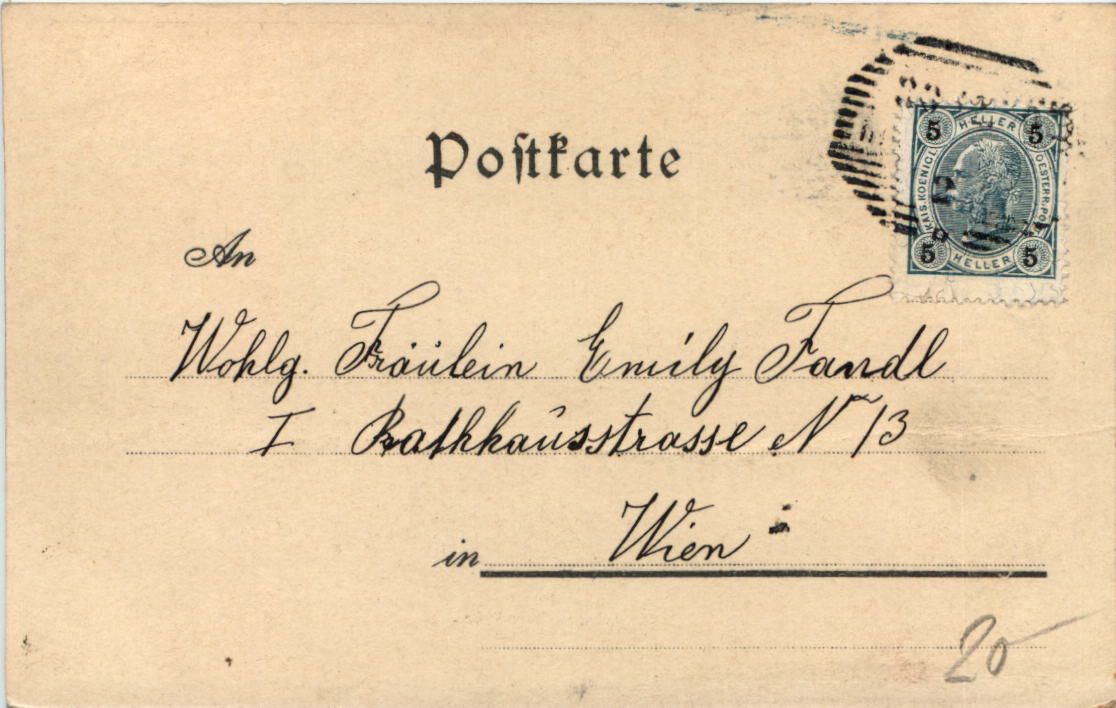 Postkarte
5 HELLER 5
KAIS. KOENIGL. OESTERR. POST
5 HELLER 5
An
Wohlg. Fräulein Emily Fandl
I Rathhausstrasse N 13
in Wien
20